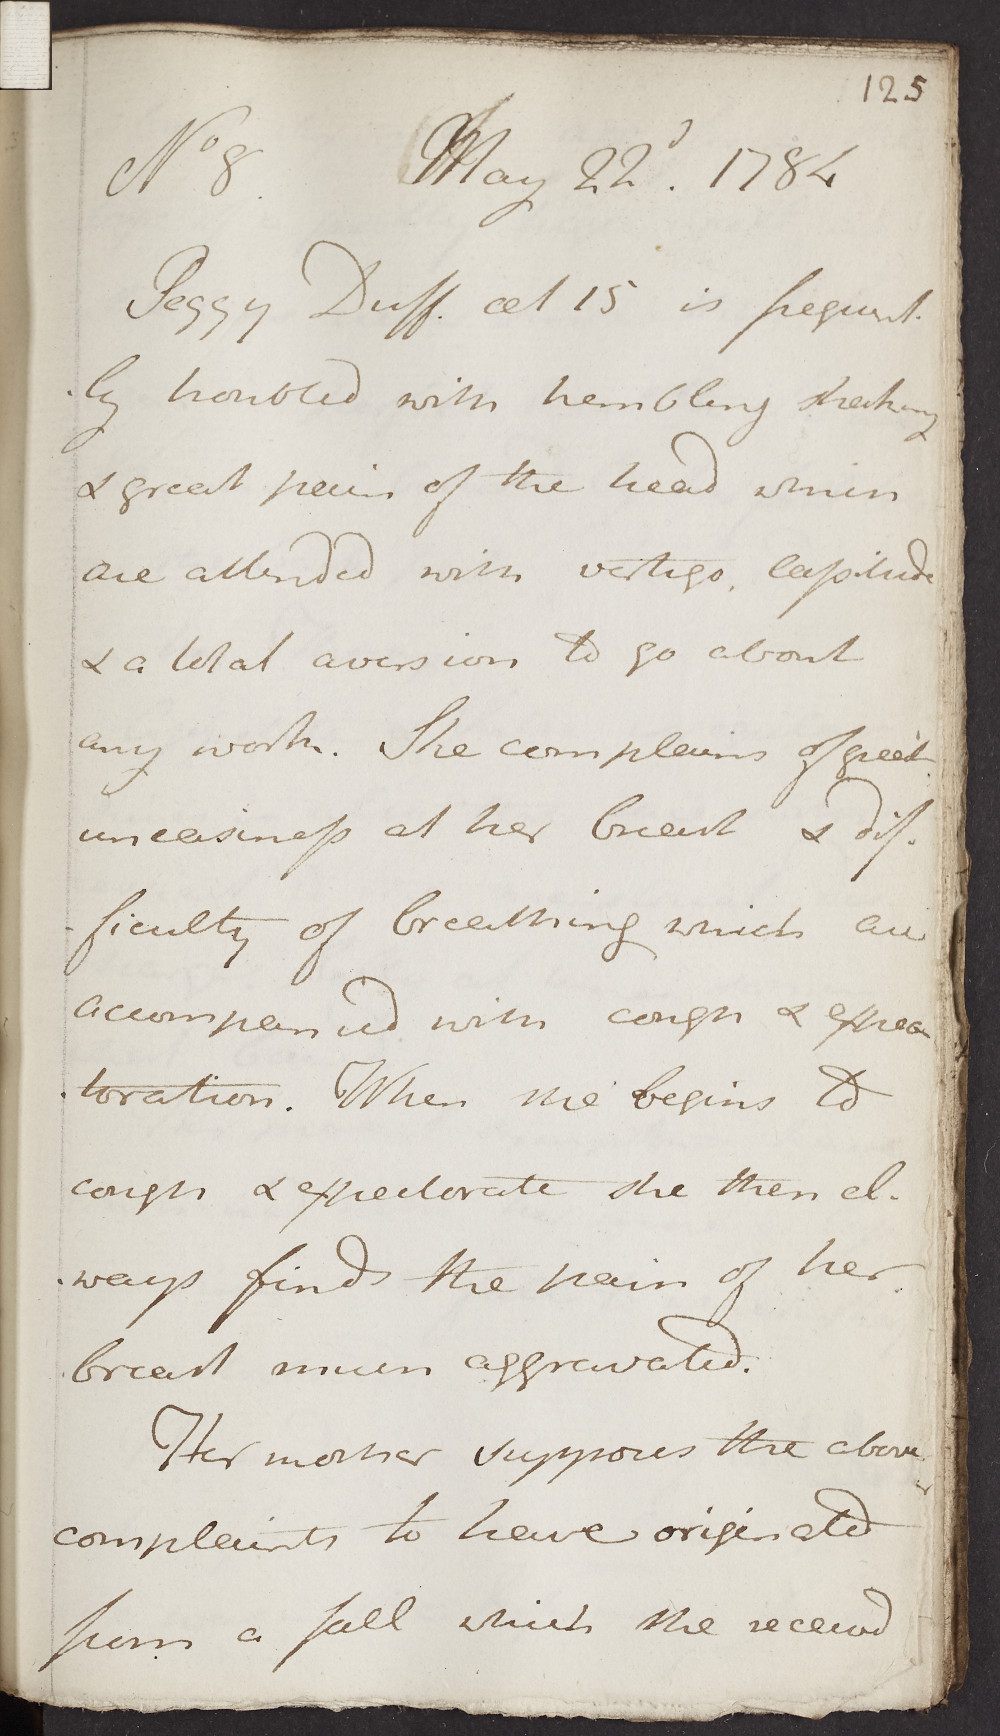 125
No 8. May 22d. 1784
Peggy Duff. aet 15 is frequent-
-ly troubled with trembling shaking
& great pain of the head which
are attended with vertigo, lassitude
& a total aversion to go about
any work. She complains of great
uneasiness at her breast & dif-
-ficulty of breathing which are
accompanied with cough & expec
-toration. When she begins to
cough & expectorate she then al-
-ways finds the pain of her
breast much aggravated.
Her mother supposes the above
complaints to have originated
from a fall which she received